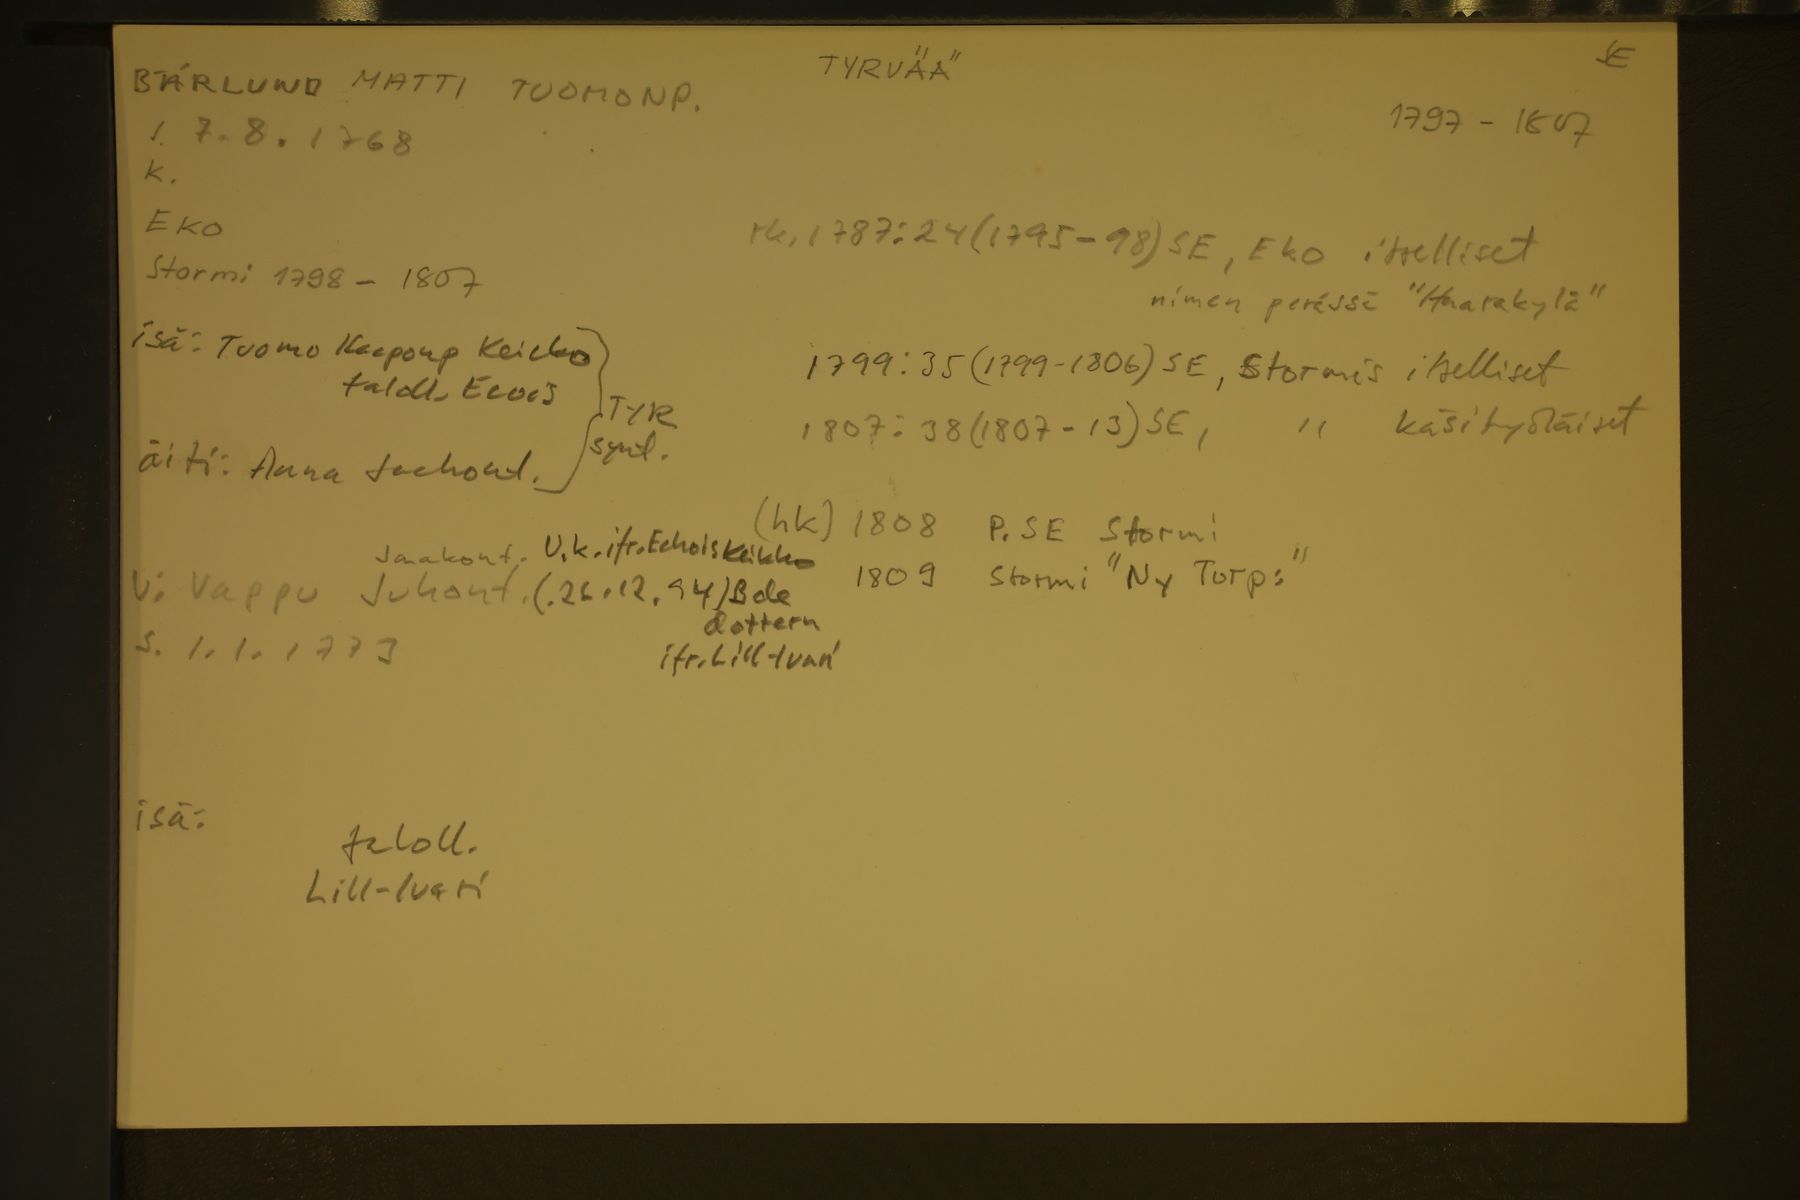 TYRVÄÄ
SE
BÄRLUND MATTI TUOMONP.
1797 - 1807
s. 7.8.1768
k.
Eko
rk. 1787:24 (1795-98) SE, Eko itselliset
nimen perässä "Haarakylä"
Stormi 1798 - 1807
isä: Tuomo Kaaponp Keikko
taloll. Ecois
TYR
synt.
1799:35 (1799-1806) SE, Stormis itselliset
1807:38 (1807-13) SE, " käsityöläiset
äiti: Anna Jachont.
(hk) 1808 P. SE Stormi
1809 Stormi "Ny Torp:"
Jaakont. V.k. ifr. Echois Keikko
V: Vappu Juhont. (.26.12.94) Bde
dottern
ifr. Lill-Ivari
s. 1.1.1773
isä:
taloll.
Lill-Ivari